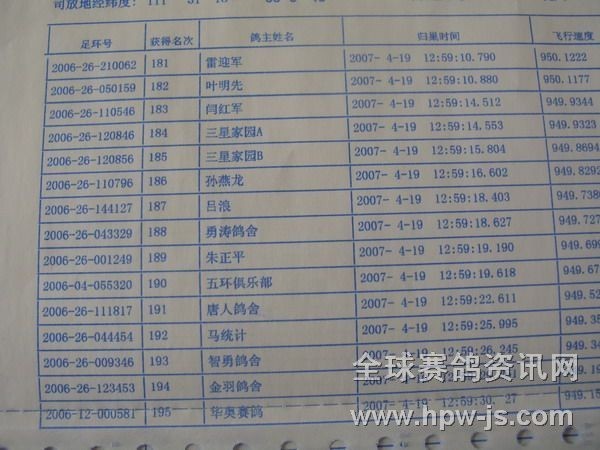 司放地经纬度:
足环号 获得名次 鸽主姓名 归巢时间 飞行速度
2006-26-210062 181 雷迎军 2007- 4-19 12:59:10.790 950.1222
2006-26-050159 182 叶明先 2007- 4-19 12:59:10.880 950.1177
2006-26-110546 183 闫红军 2007- 4-19 12:59:14.512 949.9344
2006-26-120846 184 三星家园A 2007- 4-19 12:59:14.553 949.9323
2006-26-120856 185 三星家园B 2007- 4-19 12:59:15.804 949.8694
2006-26-110796 186 孙燕龙 2007- 4-19 12:59:16.602 949.8292
2006-26-144127 187 吕浪 2007- 4-19 12:59:18.403 949.738
2006-26-043329 188 勇涛鸽舍 2007- 4-19 12:59:18.627 949.727
2006-26-001249 189 朱正平 2007- 4-19 12:59:19.190 949.699
2006-04-055320 190 五环俱乐部 2007- 4-19 12:59:19.618 949.67
2006-26-111817 191 唐人鸽舍 2007- 4-19 12:59:22.611 949.52
2006-26-044454 192 马统计 2007- 4-19 12:59:25.995 949.35
2006-26-009346 193 智勇鸽舍 2007- 4-19 12:59:26.245 949.34
2006-26-123453 194 金羽鸽舍 2007- 4-19
2006-12-000581 195 华奥赛鸽 2007- 4-19 12:59:30. 27 949.15
全球赛鸽资讯网
www.hpw-js.com